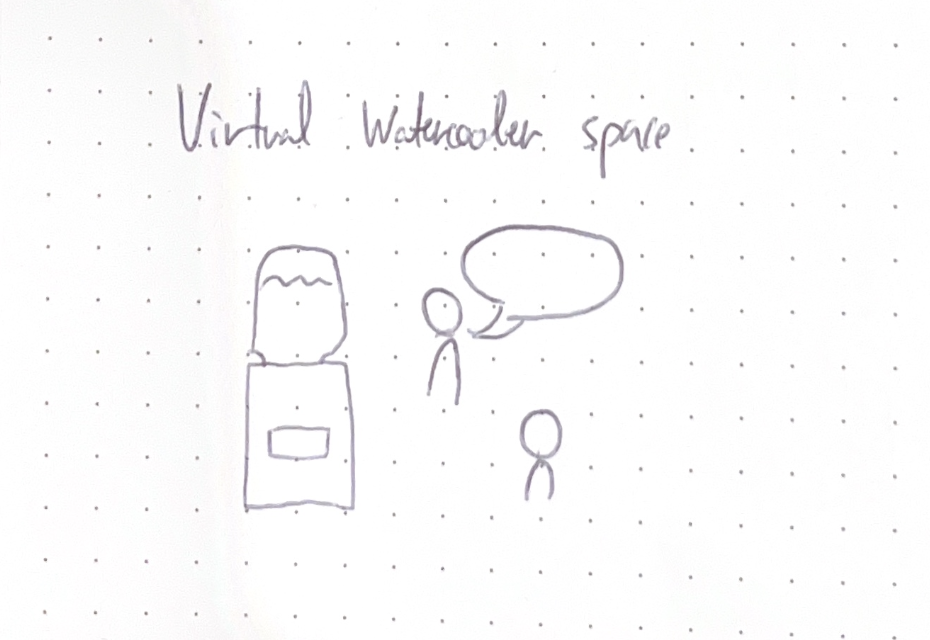 Virtual Watercooler space